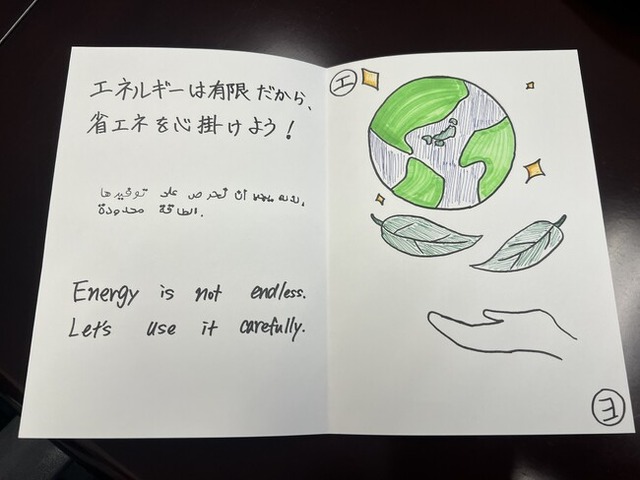 エネルギーは有限だから、
省エネを心掛けよう！
ان نحرص على توفيرها
الطاقة محدودة.
Energy is not endless.
Let's use it carefully.
エ
E